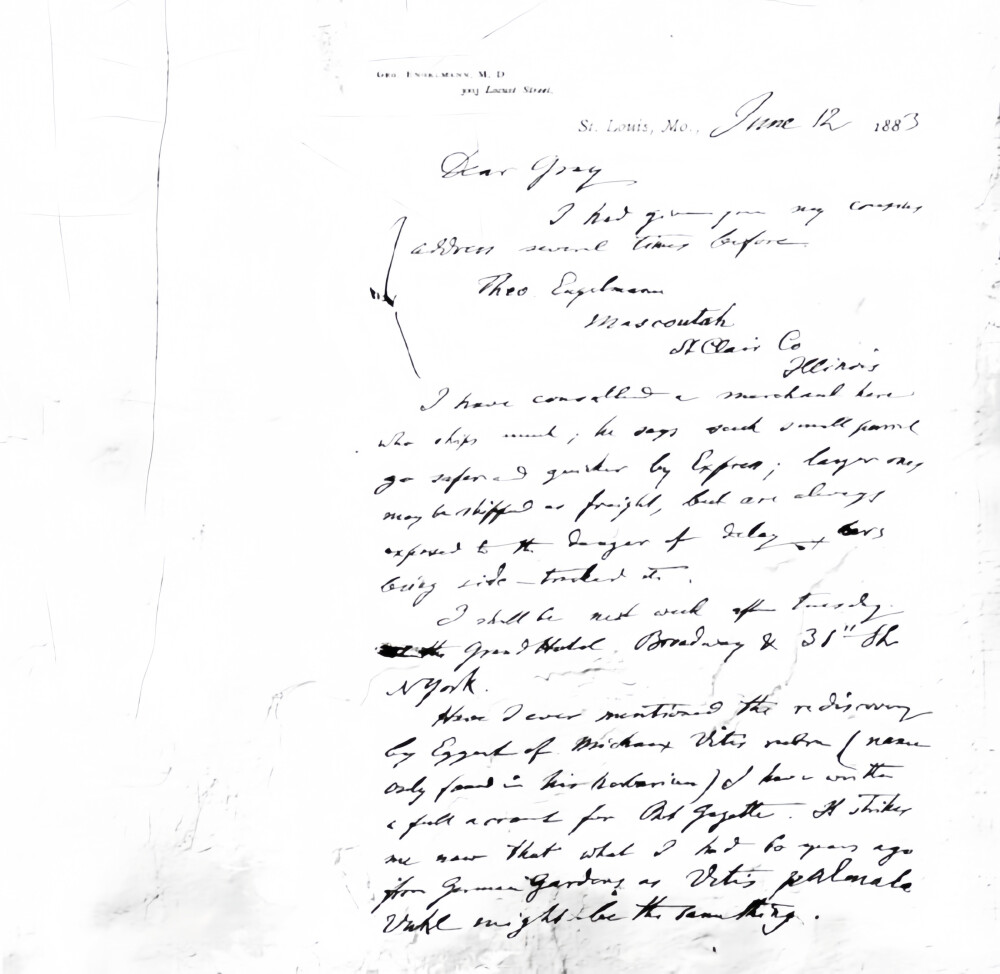 Geo. Engelmann, M. D
3003 Locust Street.
St. Louis, Mo., June 12 1883
Dear Gray
I had given you my cousins
address several times before
Theo. Engelmann
Mascoutah
St Clair Co
Illinois
I have consulted a merchant here
who ships much; he says such small parcel
go safer and quicker by Express; larger ones
may be shipped as freight, but are always
exposed to the danger of delay
being side-tracked etc.
I shall be next week after Tuesday
at the Grand Hotel. Broadway & 31st Str
NYork.
Have I ever mentioned the rediscovery
by Eggert of Michaux Vitis rubra (name
only found in his herbarium) I have written
a full account for Bot Gazette. It strikes
me now that what I had 60 years ago
from German Gardens as Vitis palmata
Vahl might be the same thing.